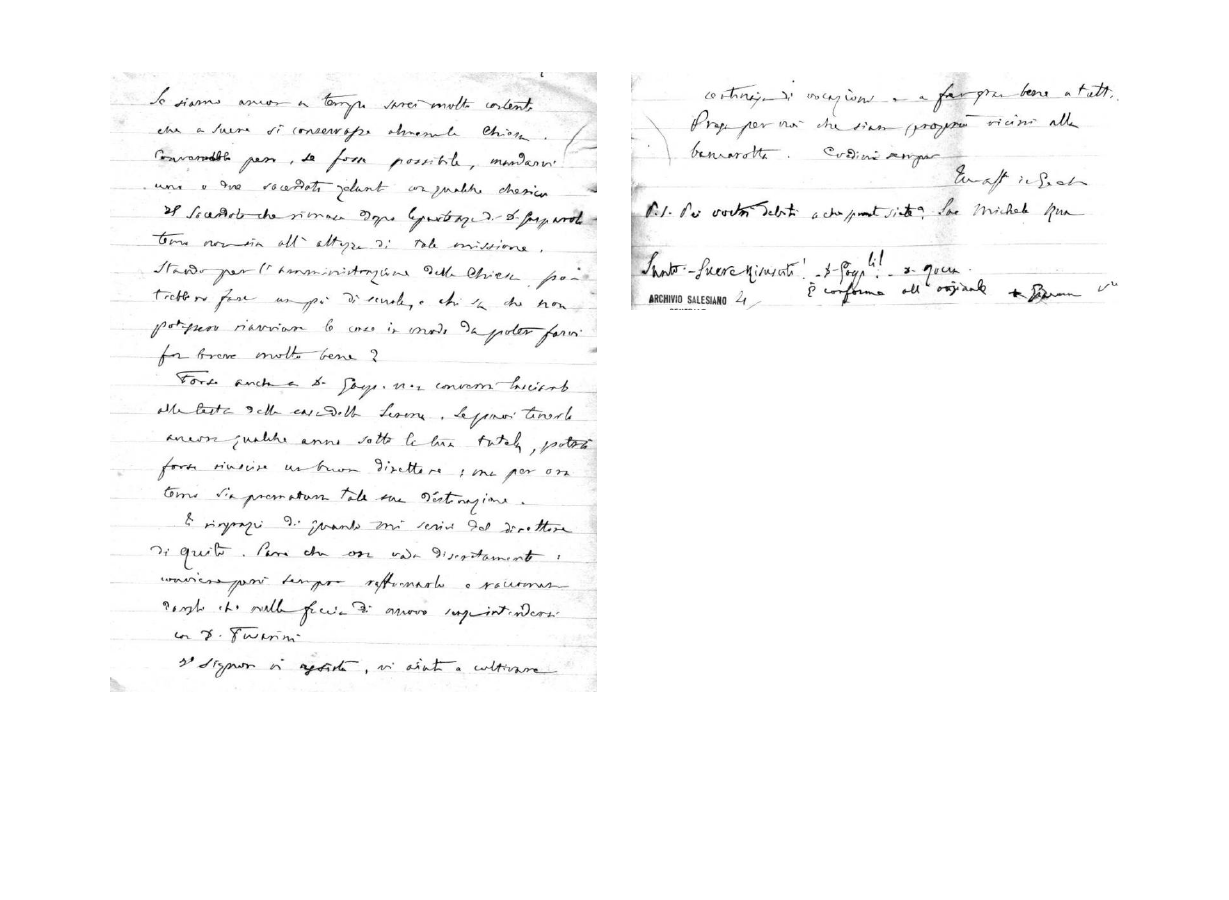 Se siamo ancor a tempo sarei molto contento
che a Sucre si conservasse almeno la Chiesa.
Converrebbe però, se fosse possibile, mandarvi
uno o due sacerdoti zelanti con qualche chierico
Il Sacerdote che rimase dopo la partenza di D. Gasparoli
temo non sia all'altezza di tale missione.
Stando per l'amministrazione della Chiesa po-
trebbero fare un po' di scuola, e chi sa che non
potessero riavviare le cose in modo da poter farvi
fra breve molto bene?
Forse anche a D. non conviene lasciarlo
alla testa della casa della Serena. Se puoi tenerlo
ancora qualche anno sotto la tua tutela, potrà
forse riuscire un buon direttore; ma per ora
temo sia prematura tale sua destinazione.
E ringrazio di quanto mi scrivi del direttore
di Quito. Pare che ora vada discretamente:
conviene però sempre raffermarlo e raccoman
darglo che nulla faccia di nuovo senza intendersi
con D. Fusarini
Il Signore vi assista, vi aiuti a coltivare
centinaja di vocazioni e a far gran bene a tutti.
Prega per noi che siam proprio vicini alla
bancarotta. Credimi sempre
Tuo aff in G.
P.S. Dei vostri debiti a che punto siete? San Michele
Santo - Sucre D.
È conforme all'originale
ARCHIVIO SALESIANO